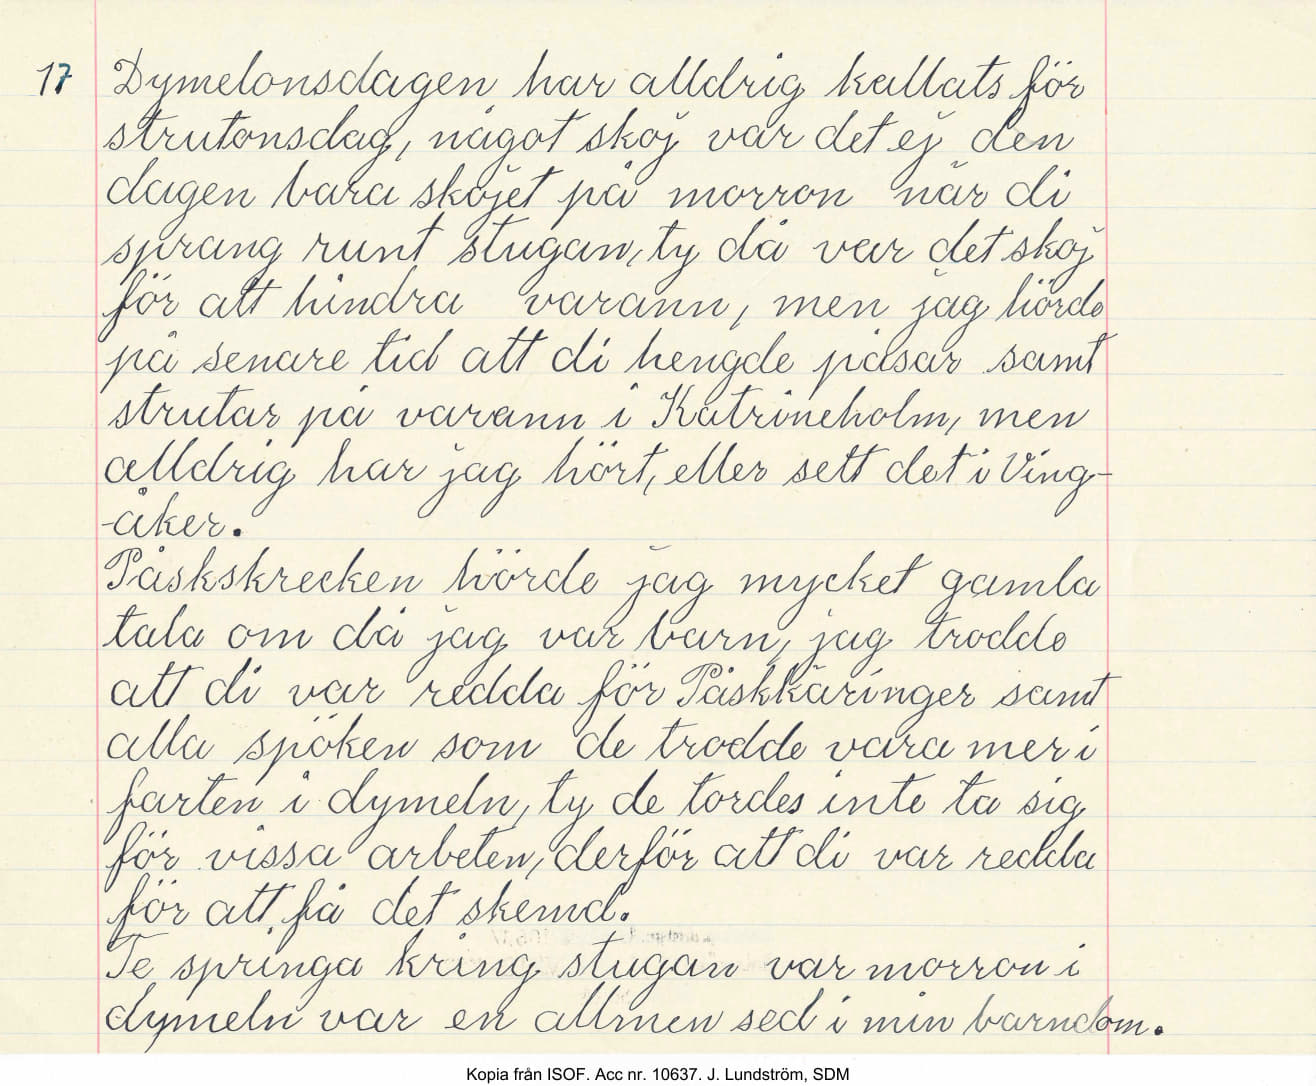 17 Dymelonsdagen har alldrig kallats för
strutonsdag, något skoj var det ej den
dagen bara skojet på morron när di
sprang runt stugan, ty då var det skoj
för att hindra varann, men jag hörde
på senare tid att di hengde påsar samt
strutar på varann i Katrineholm, men
alldrig har jag hört, eller sett det i Ving-
-åker.
Påskskrecken hörde jag mycket gamla
tala om då jag var barn, jag trodde
att di var redda för Påskkäringer samt
alla spöken som de trodde vara mer i
farten i dymeln, ty de tordes inte ta sig
för vissa arbeten, derför att di var redda
för att få det skemd.
Te springa kring stugan var morron i
dymeln var en allmen sed i min barndom.
Kopia från ISOF. Acc nr. 10637. J. Lundström, SDM